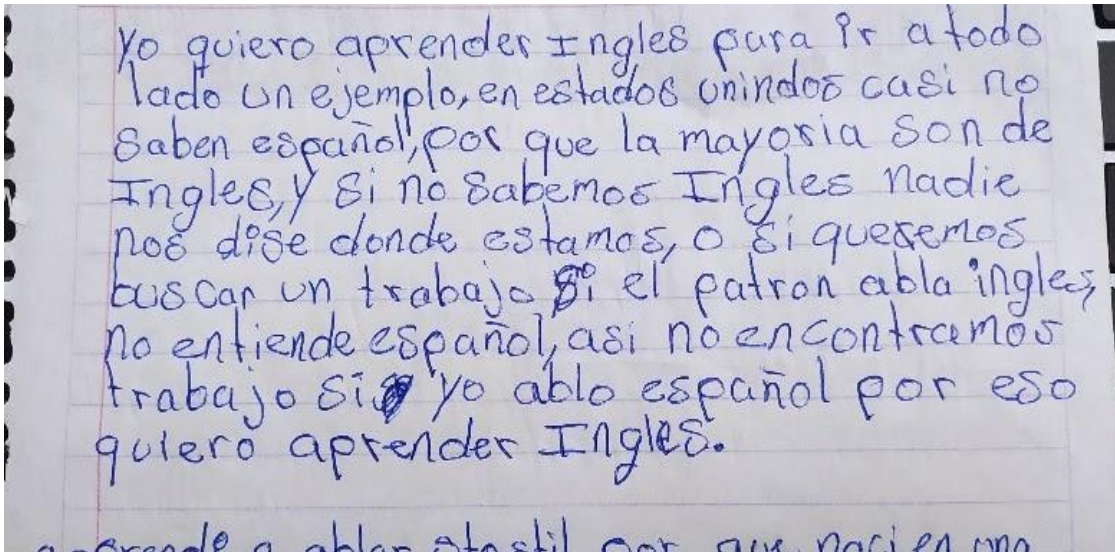 Yo quiero aprender Ingles para ir a todo
lado un ejemplo, en estados unindos casi no
saben español, por que la mayoria son de
Ingles, y si no sabemos Ingles nadie
nos dise donde estamos, o si queremos
buscar un trabajo si el patron abla ingles,
no entiende español, asi no encontramos
trabajo si yo ablo español por eso
quiero aprender Ingles.